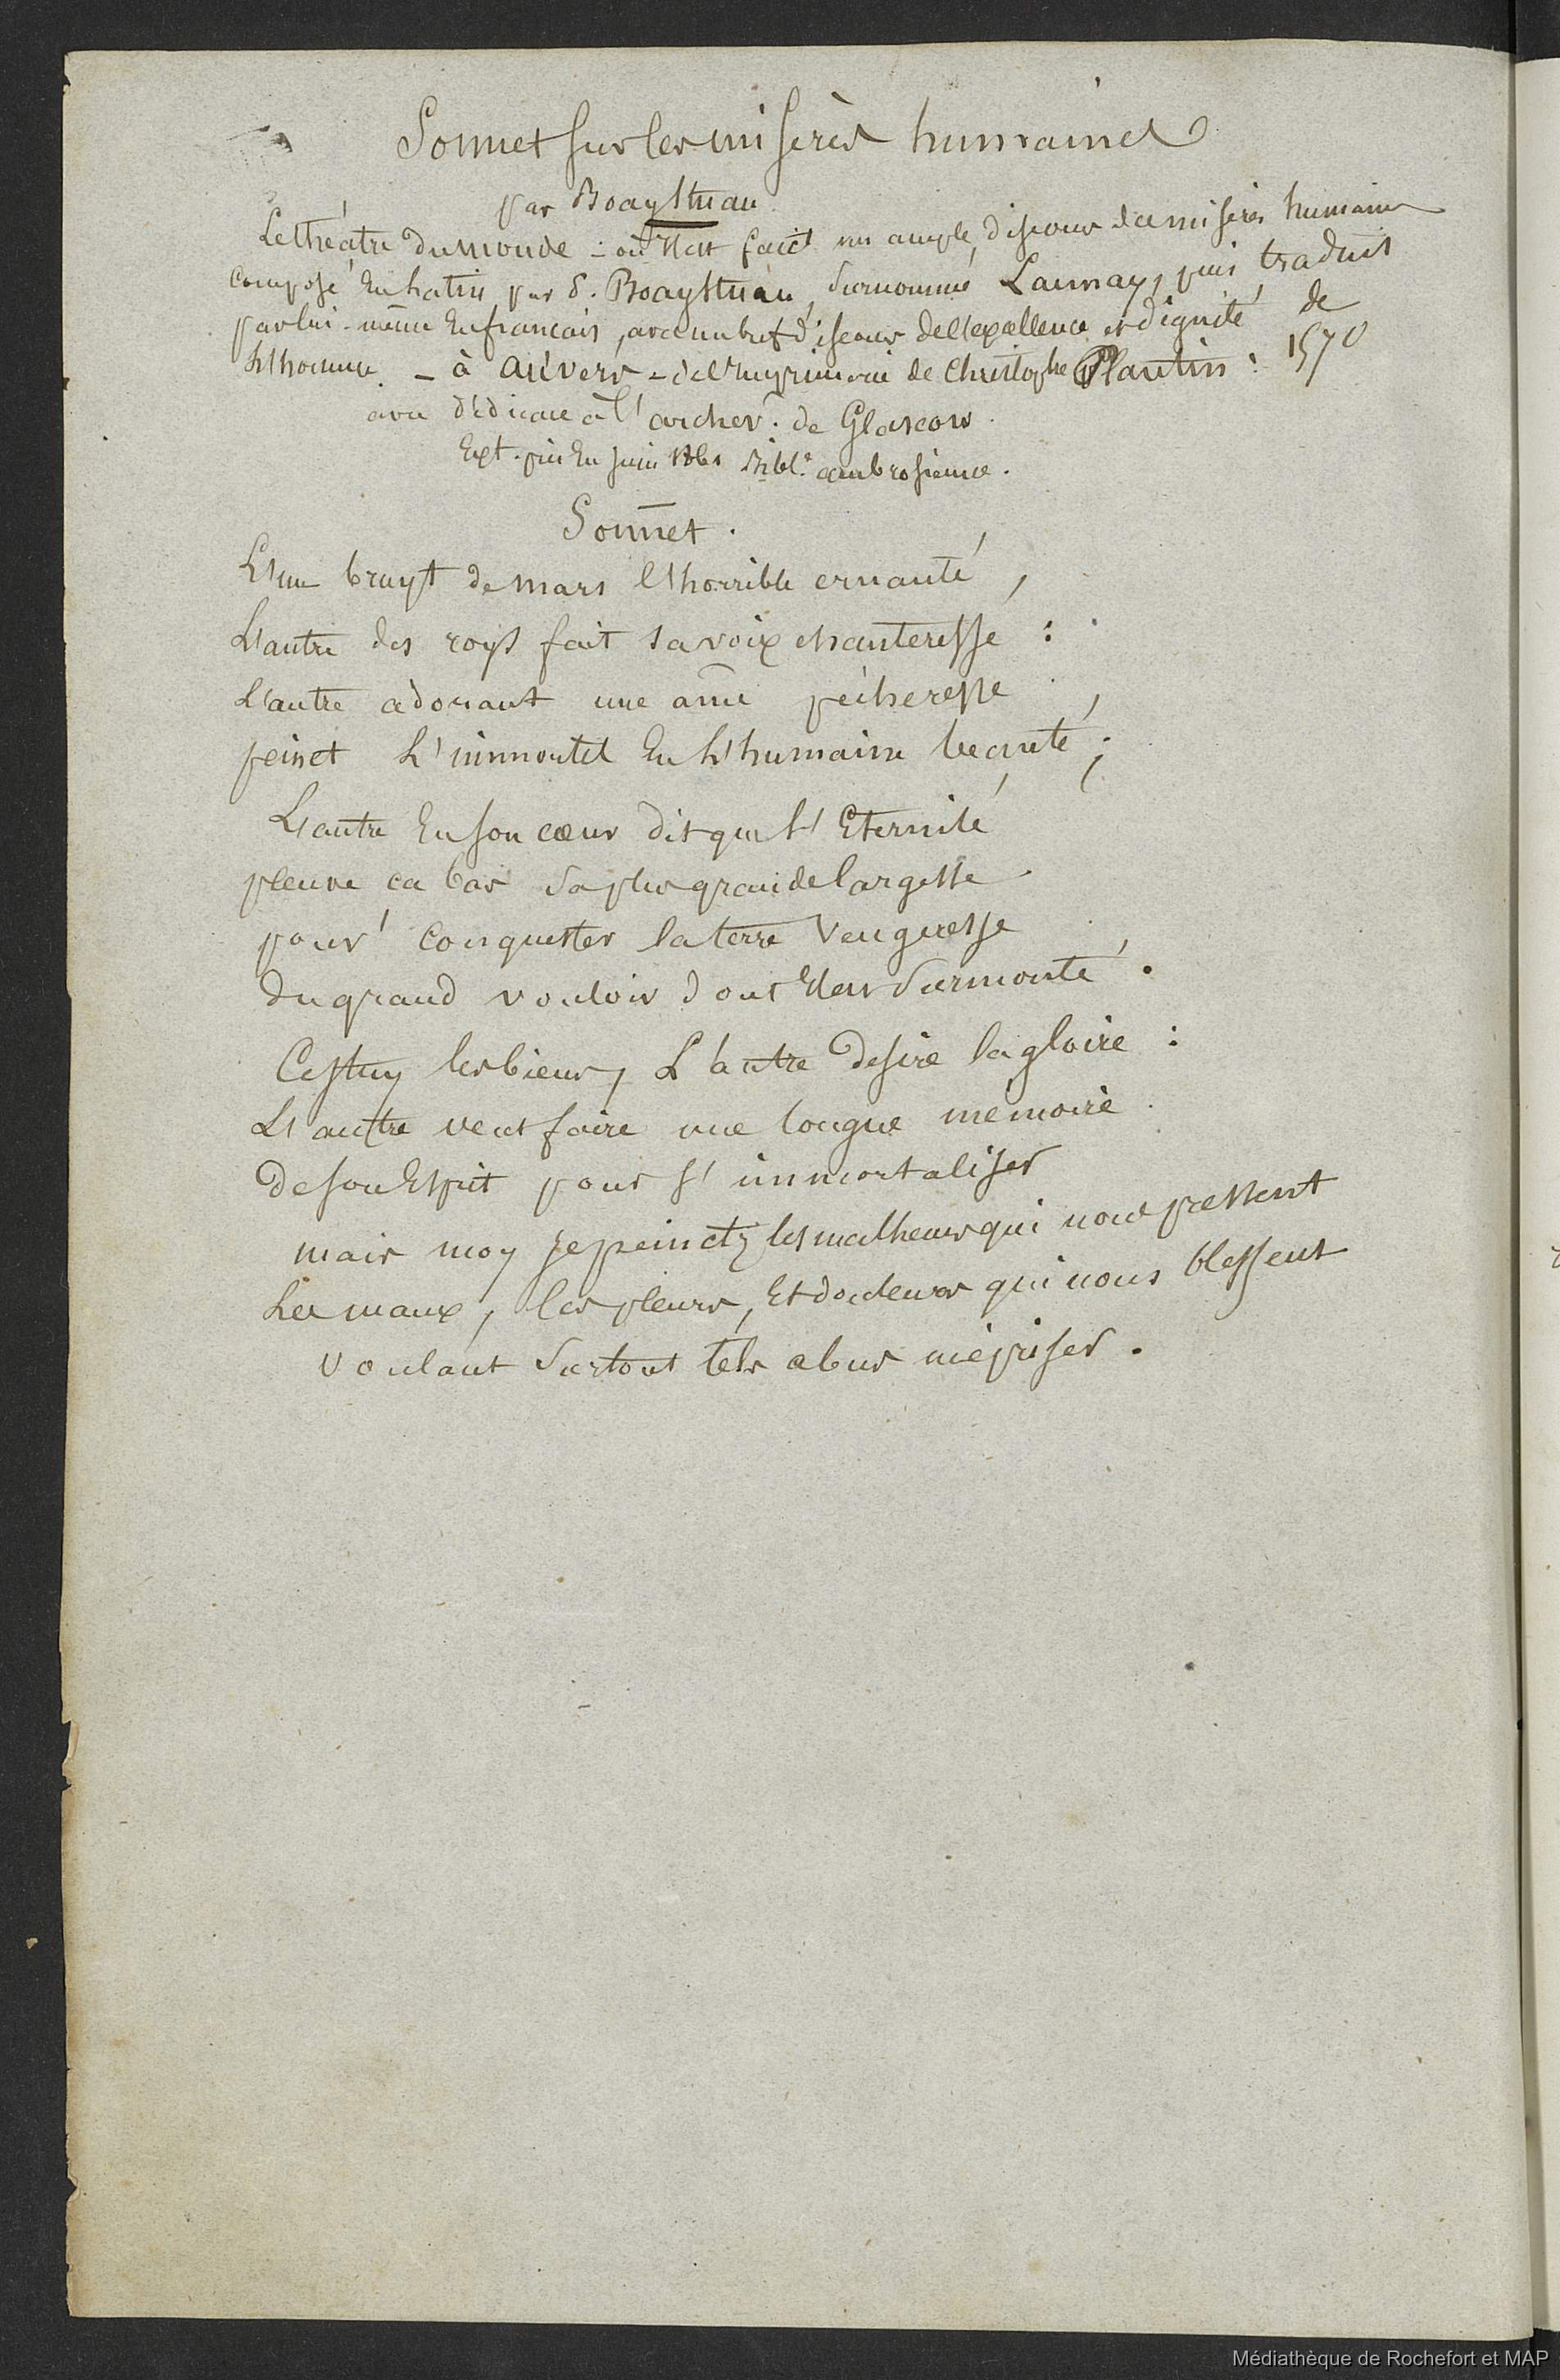 Sonnet sur les misères humaines
par Boaystuau
Le théatre du monde - où il est faict un ample discours des misères humaines
composé En Latin par P. Boaystuau, surnommé Launay, puis traduit
par lui-même En francais, avec un bref discours de l'excellence et dignité de
L'homme. - à Anvers - de l'imprimerie de Christophe Plantin : 1570
avec dédicace à l'archev. de Glascow.
Ext. pris En juin 1861 Bibl.e ambrosienne.
Sonnet.
L'un bruyt de mars l'horrible cruauté,
L'autre des roys fait sa voix chanteresse :
L'autre adorant une ame pécheresse,
peinct L'immortel En L'humaine beauté ;
L'autre En son cœur dit que L'Eternité
pleuve ça bas sa plus grande largesse
pour conquester la terre vengeresse
du grand vouloir dont Elle est surmonté.
Cestuy les biens, L'autre desire la gloire :
L'autre veut faire une longue mémoire
de son Esprit pour s'immortaliser
mais moy je peinctz les malheurs qui nous pressent
Les maux, les pleurs, Et douleurs qui nous blessent
voulant surtout tels abus mépriser.
Médiathèque de Rochefort et MAP